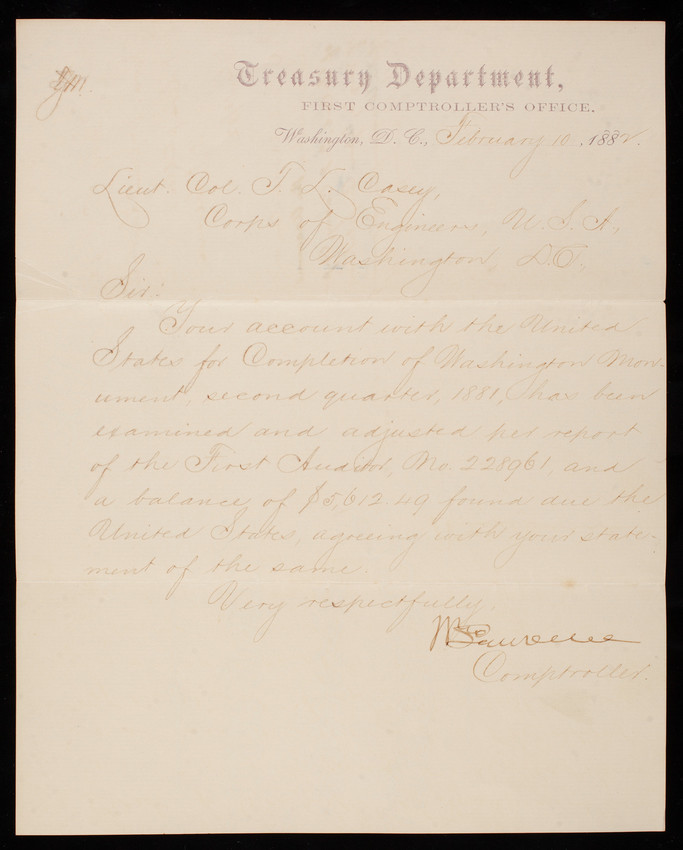 Treasury Department,
FIRST COMPTROLLER'S OFFICE.
Washington, D. C., February 10, 1882.
Lieut. Col. T. L. Casey,
Corps of Engineers, U.S.A.,
Washington, D.C.,
Sir:
Your account with the United
States for Completion of Washington Mon-
ument, second quarter, 1881, has been
examined and adjusted per report
of the First Auditor, No. 228961, and
a balance of $5,612.49 found due the
United States, agreeing with your state-
ment of the same.
Very respectfully,
Wm Lawrence
Comptroller.